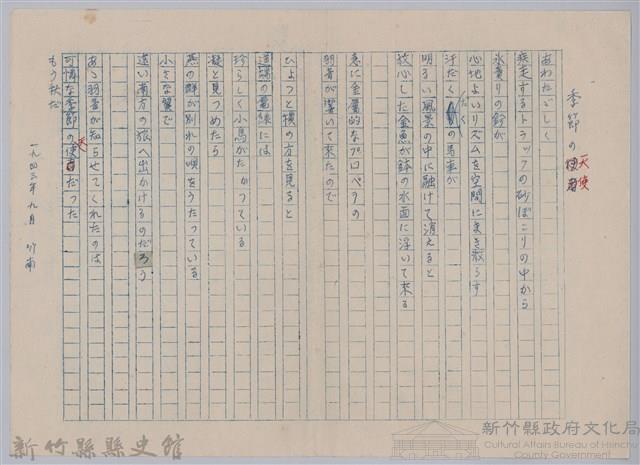 季節の天使
あわただしく
疾走するトラックの砂ぼこりの中から
氷賣りの鈴が
心地よいリズムを空間にまき散らす
汗だくだくの馬車が
明るい風景の中に融けて消えると
放心した金魚が鉢の水面に浮いて来る
急に金屬的なプロペラの
羽音が響いて来たので
ひょっと横の方を見ると
這場の電線には
珍らしく小鳥がたかっている
凝と見つめたら
燕の群が別れの唄をうたっている
小さな翼で
遠い南方の旅へ出かけるのだろう
あゝ羽音が知らせてくれたのは
可憐な季節の天使だった
もう秋だ
一九四三年九月 竹南
新竹縣縣史館
新竹縣政府文化局
Cultural Affairs Bureau of Hsinchu
County Government